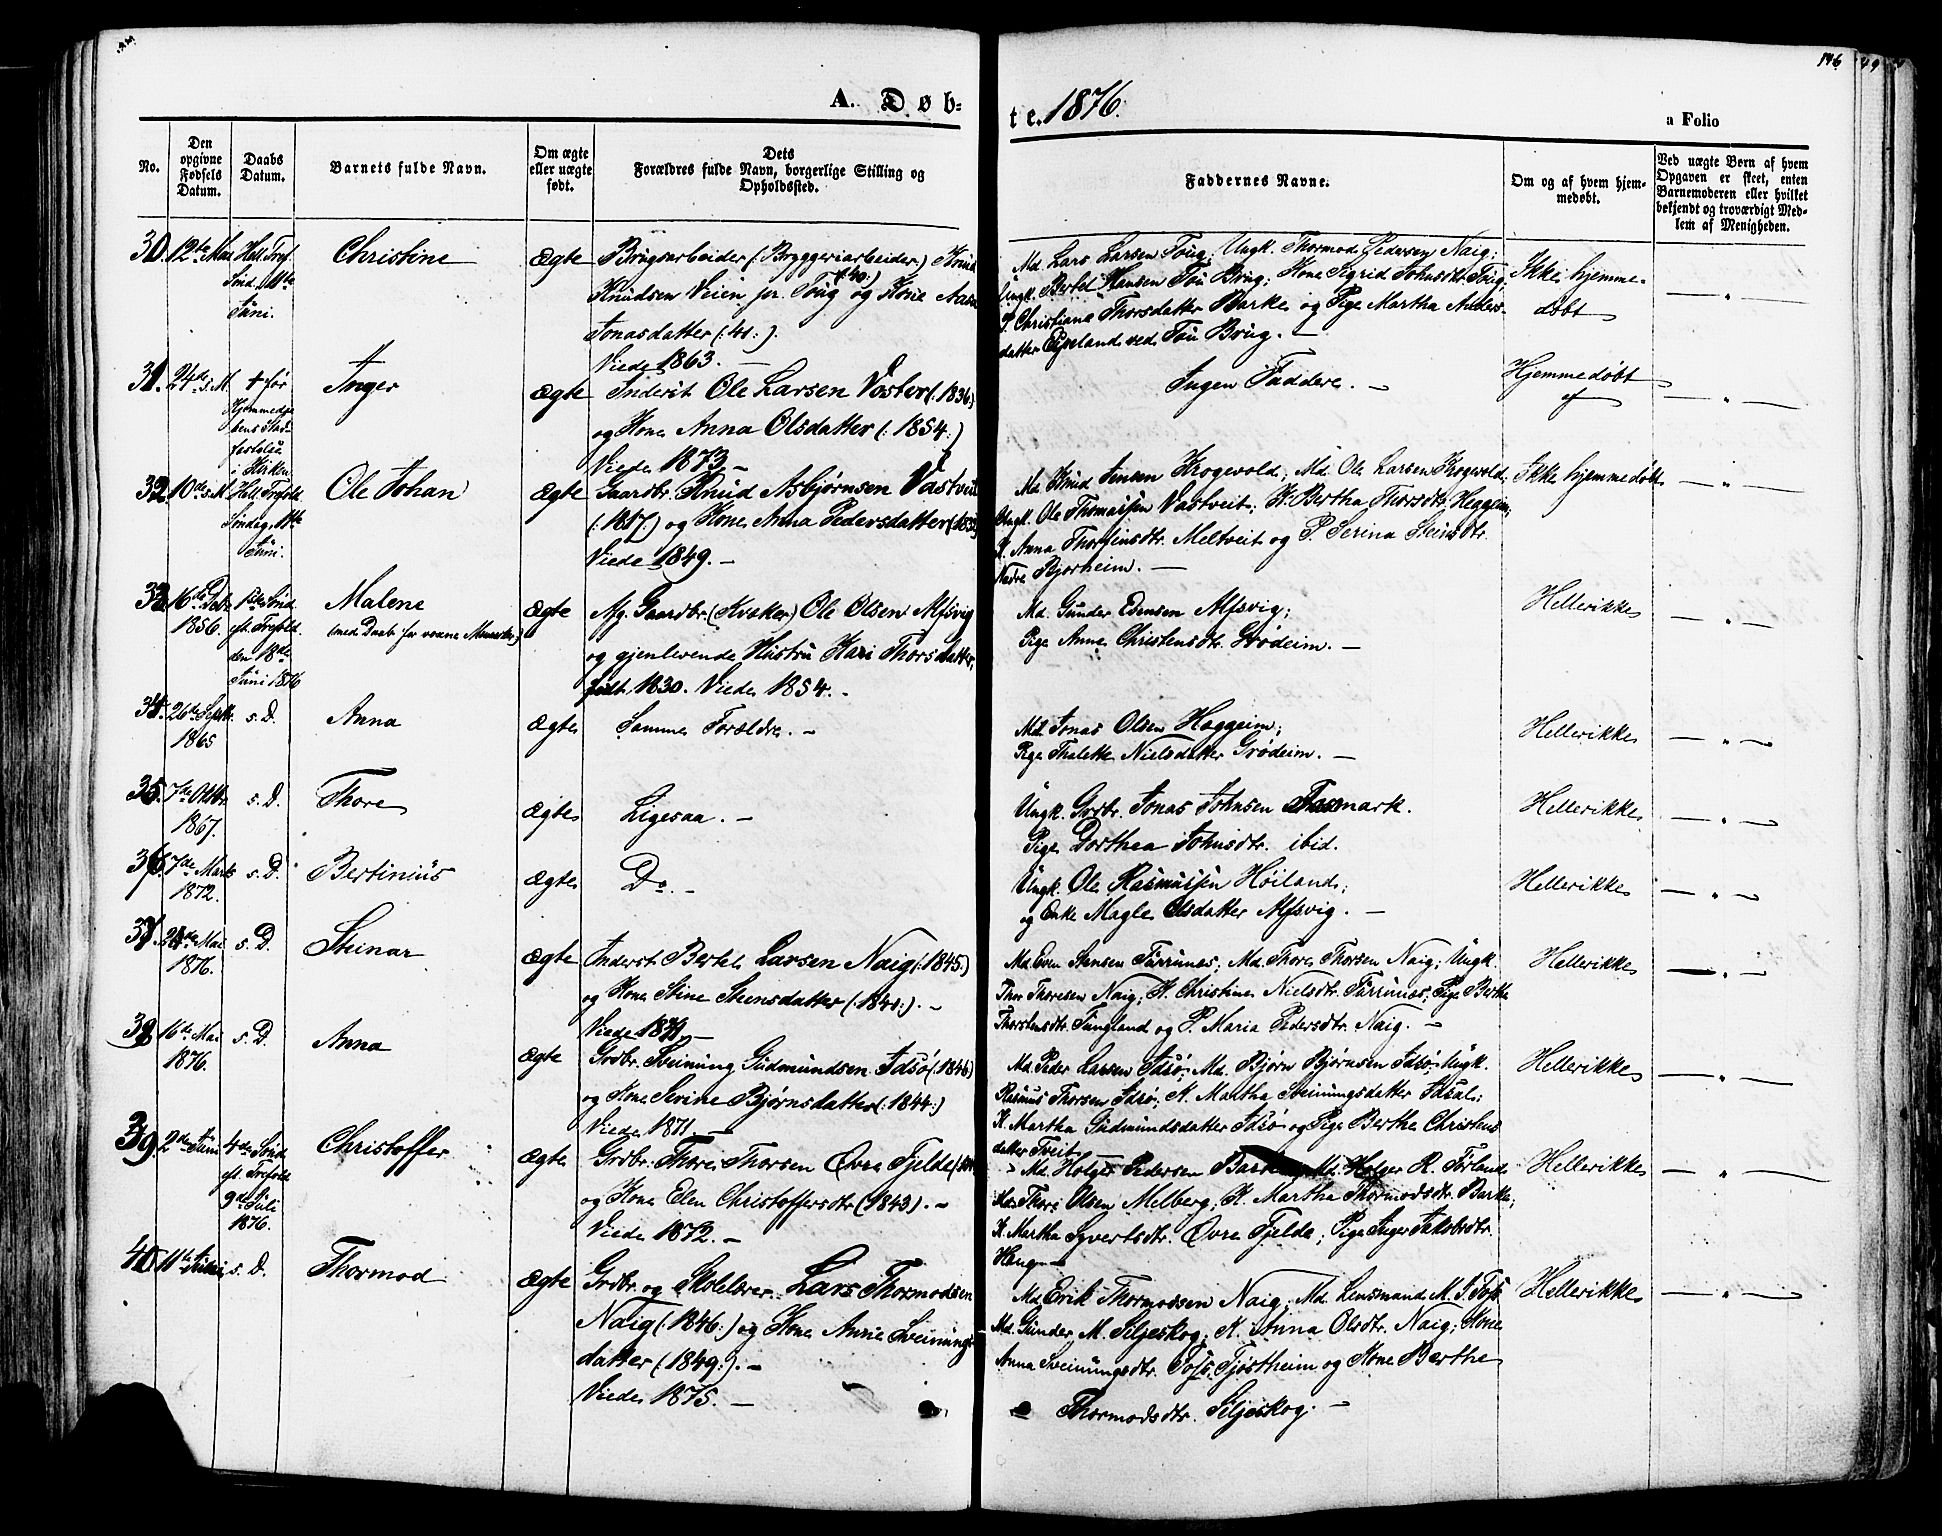 A. Døb-
te. 1876.
a Folio
146
No.
Den opgivne Fødsels Datum.
Daabs Datum.
Barnets fulde Navn.
Om ægte eller uægte født.
Dets Forældres fulde Navn, borgerlige Stilling og Opholdssted.
Faddernes Navne.
Om og af hvem hjemmedøbt.
Ved uægte Børn af hvem Opgaven er skeet, enten Barnemoderen eller hvilket bekjendt og troværdigt Medlem af Menigheden.
30. 12te Mai Hell. Tref. Christine Ægte Brugsarbeider (Bryggeriarbeider) Knud
Sønd. 11te Knudsen Veien pr. Toug (:40:) og Kone Aasa
Juni. Jonasdatter (:41:).
Viede 1863. —
Md. Lars Larsen Toug; Ungk. Thormod Pedersen Naig;
Ungk. Bertel Hansen Tou Brug; Kone Sigrid Johnsdtr. Toug;
P. Christiane Thorsdatter Barke og Pige Martha Anders-
datter Eyeland ved Tou Brug. —
Ikke hjemme-
døbt
31. 24de s. M. † før Inger Ægte Inderst Ole Larsen Vosber (:1836)
Hjemmedaa-
bens Stad-
festelse
i Kirken
og Kone Anna Olsdatter (:1854:)
Viede 1873 —
Ingen Faddere. —
Hjemmedøbt
af
32. 10de s. M. Hell. Trefold. Ole Johan Ægte Gaardbr. Knud Asbjørnsen Vastveit
Søndag 11te (:1817:) og Kone Anna Pedersdatter
Juni. Viede 1849. —
Md. Knud Jensen Krogevold; Md. Ole Larsen Krogevold;
Ungk. Ole Thomassen Vastveit; K. Bertha Thorsdtr. Heggem;
K. Anna Thorstensdtr. Meltveit og P. Serina Steinsdtr.
Nedre Bjorheim. —
Ikke hjemmedøbt
33. 16de Debr. 1ste Sønd. Malene Ægte Afg. Gaardbr. (Kvæker) Ole Olsen Alfsvig
1856. eft. Trefold. (med Daab for voxne Mennesker) og gjenlevende Hustru Kari Thorsdatter,
den 18de født 1830. Viede 1854. -
Juni 1876
Md. Gunder Edensen Alfsvig;
Pige Anna Christensdtr. Grødeim. —
Hellerikke
34. 26de Septbr. s. D. Anna Ægte Samme Forældre. —
1865
Md. Jonas Olsen Heggeim;
Pige Thalette Nielsdatter Grødeim. —
Hellerikke
35. 7de Oktbr. s. D. Thore Ægte Ligesaa. —
1867.
Ungk. Grdbr. Jonas Johnsen Fasmark.
Pige Dorthea Johnsdtr. ibid.
Hellerikke
36. 7de Marts s. D. Bertinius Ægte Do. —
1872.
Ungk. Ole Rasmussen Høiland;
og Enke Magle Olsdatter Alfsvig. —
Hellerikke
37. 24de Mai s. D. Steinar Ægte Inderst Bertel Larsen Naig (:1845:)
1876. og Kone Stine Steensdatter (:1840:). —
Viede 1871 —
Md. Even Stensen Tarrunes; Md. Thore Thorsen Naig; Ungk.
Thor Thoresen Naig; K. Christine Nielsdtr. Tarrunes; Pige Bertha
Thorstensdtr. Tungland og P. Maria Pedersdtr. Naig. —
Hellerikke
38. 16de Mai s. D. Anna Ægte Grdbr. Sveinung Gudmundsen Idsø (:1846)
1876. og Kone Serine Bjørnsdatter (:1844:)
Viede 1871. —
Md. Peder Larsen Idsø; Md. Bjørn Bjørnsen Idsø; Ungk.
Rasmus Thorsen Idsø; K. Martha Sveinungsdatter Idsal;
K. Martha Gudmundsdatter Idsø og Pige Berthe Christens
datter Tveit.
Hellerikke
39. 2de Juni 4de Sønd. Christoffer Ægte Grdbr. Thore Thorsen Øvre Fjelde
eft. Trefold. og Kone Elen Christoffersdtr (1843). —
9de Juli Viede 1872. —
1876.
Md. Holger Pedersen Barke; Md. Holger R. Førland
Thore Olsen Melberg; K. Martha Thormodsdtr. Barke;
K. Martha Syvertsdtr. Øvre Fjelde; Pige Inger Jakobsdtr.
Haug. —
Hellerikke
40. 11te Juni s. D. Thormod Ægte Grdbr. og Skolelærer Lars Thormodsen
Naig (:1846:) og Kone Anne Sveinungs-
datter (:1849:). —
Viede 1875. —
Md. Erik Thormodsen Naig; Md. Lensmand M. T. Tofs
Md. Gunder M. Siljeskog; K. Anna Olsdtr. Naig; Kone
Anna Sveinungsdtr. Tofs, Tjøstheim og Kone Berthe
Thormodsdtr. Siljeskog. —
Hellerikke